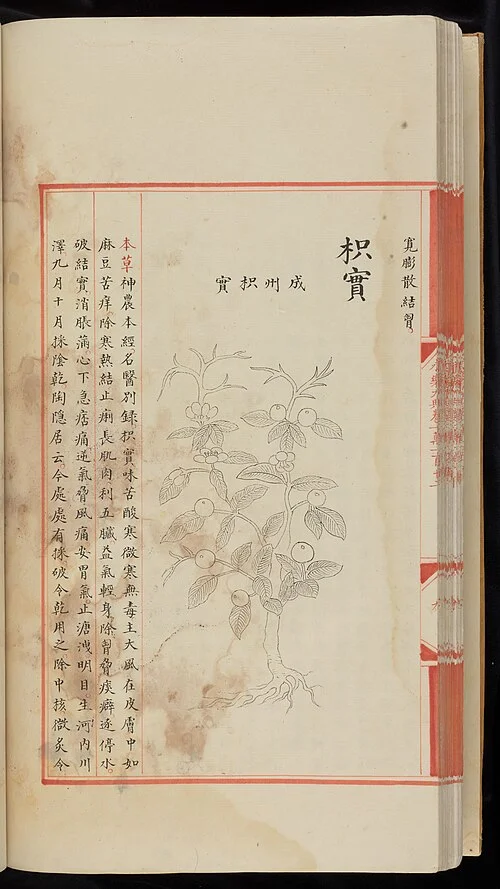 寬膨散結胷
枳實
成州枳實
本草神農本經名醫別錄枳實味苦酸寒微寒無毒主大風在皮膚中如
麻豆苦痒除寒熱結止痢長肌肉利五臟益氣輕身除胷脅痰癖逐停水
破結實消脹滿心下急痞痛逆氣脅風痛安胃氣止溏洩明目生河內川
澤九月十月採陰乾陶隱居云今處處有採破令乾用之除中核微炙令
永樂大典卷一萬